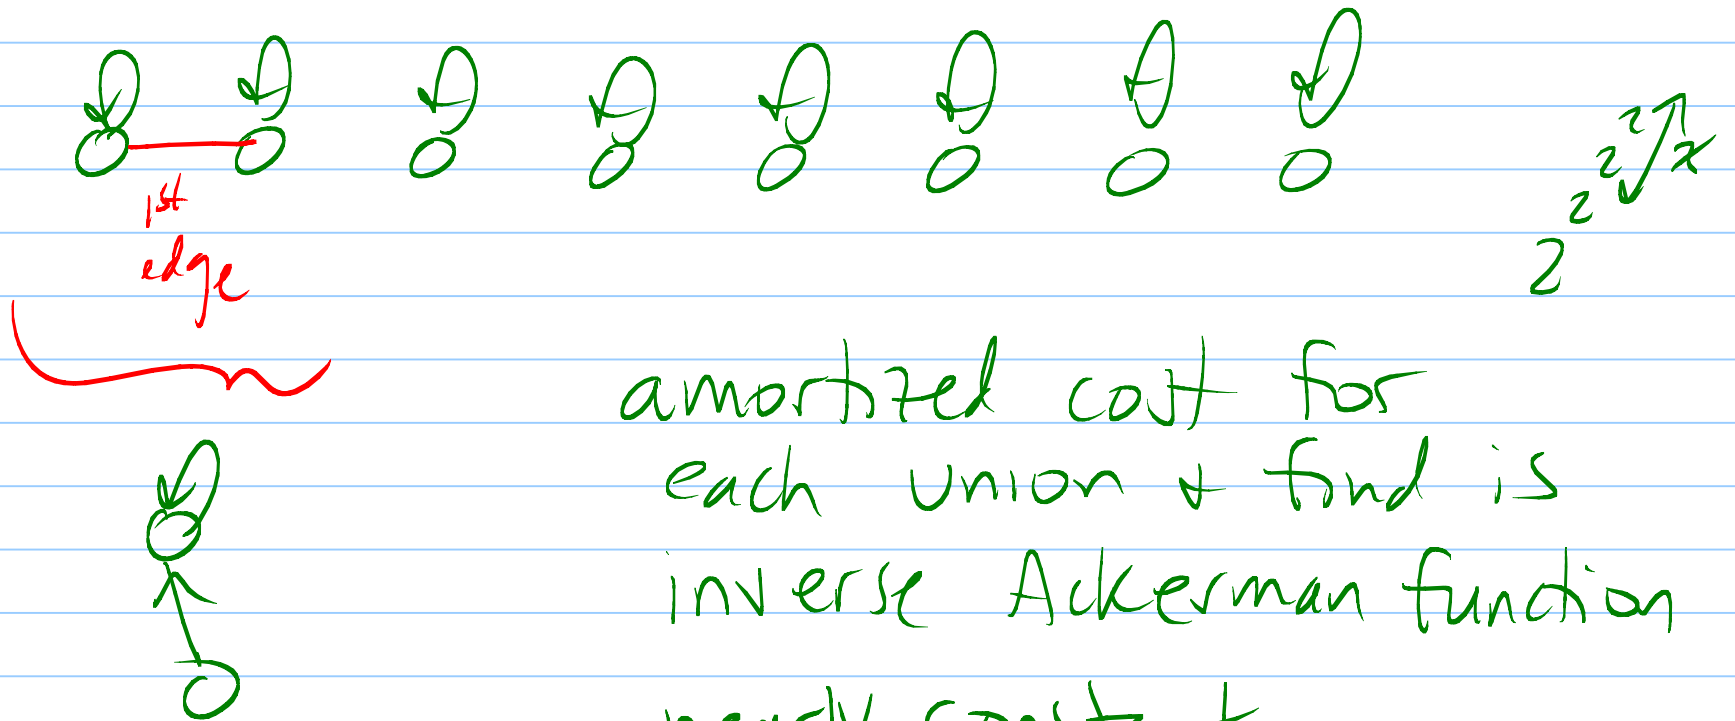 1st
edge
2
2
2
x
2
amortized cost for
each union + find is
inverse Ackerman function
nearly constant